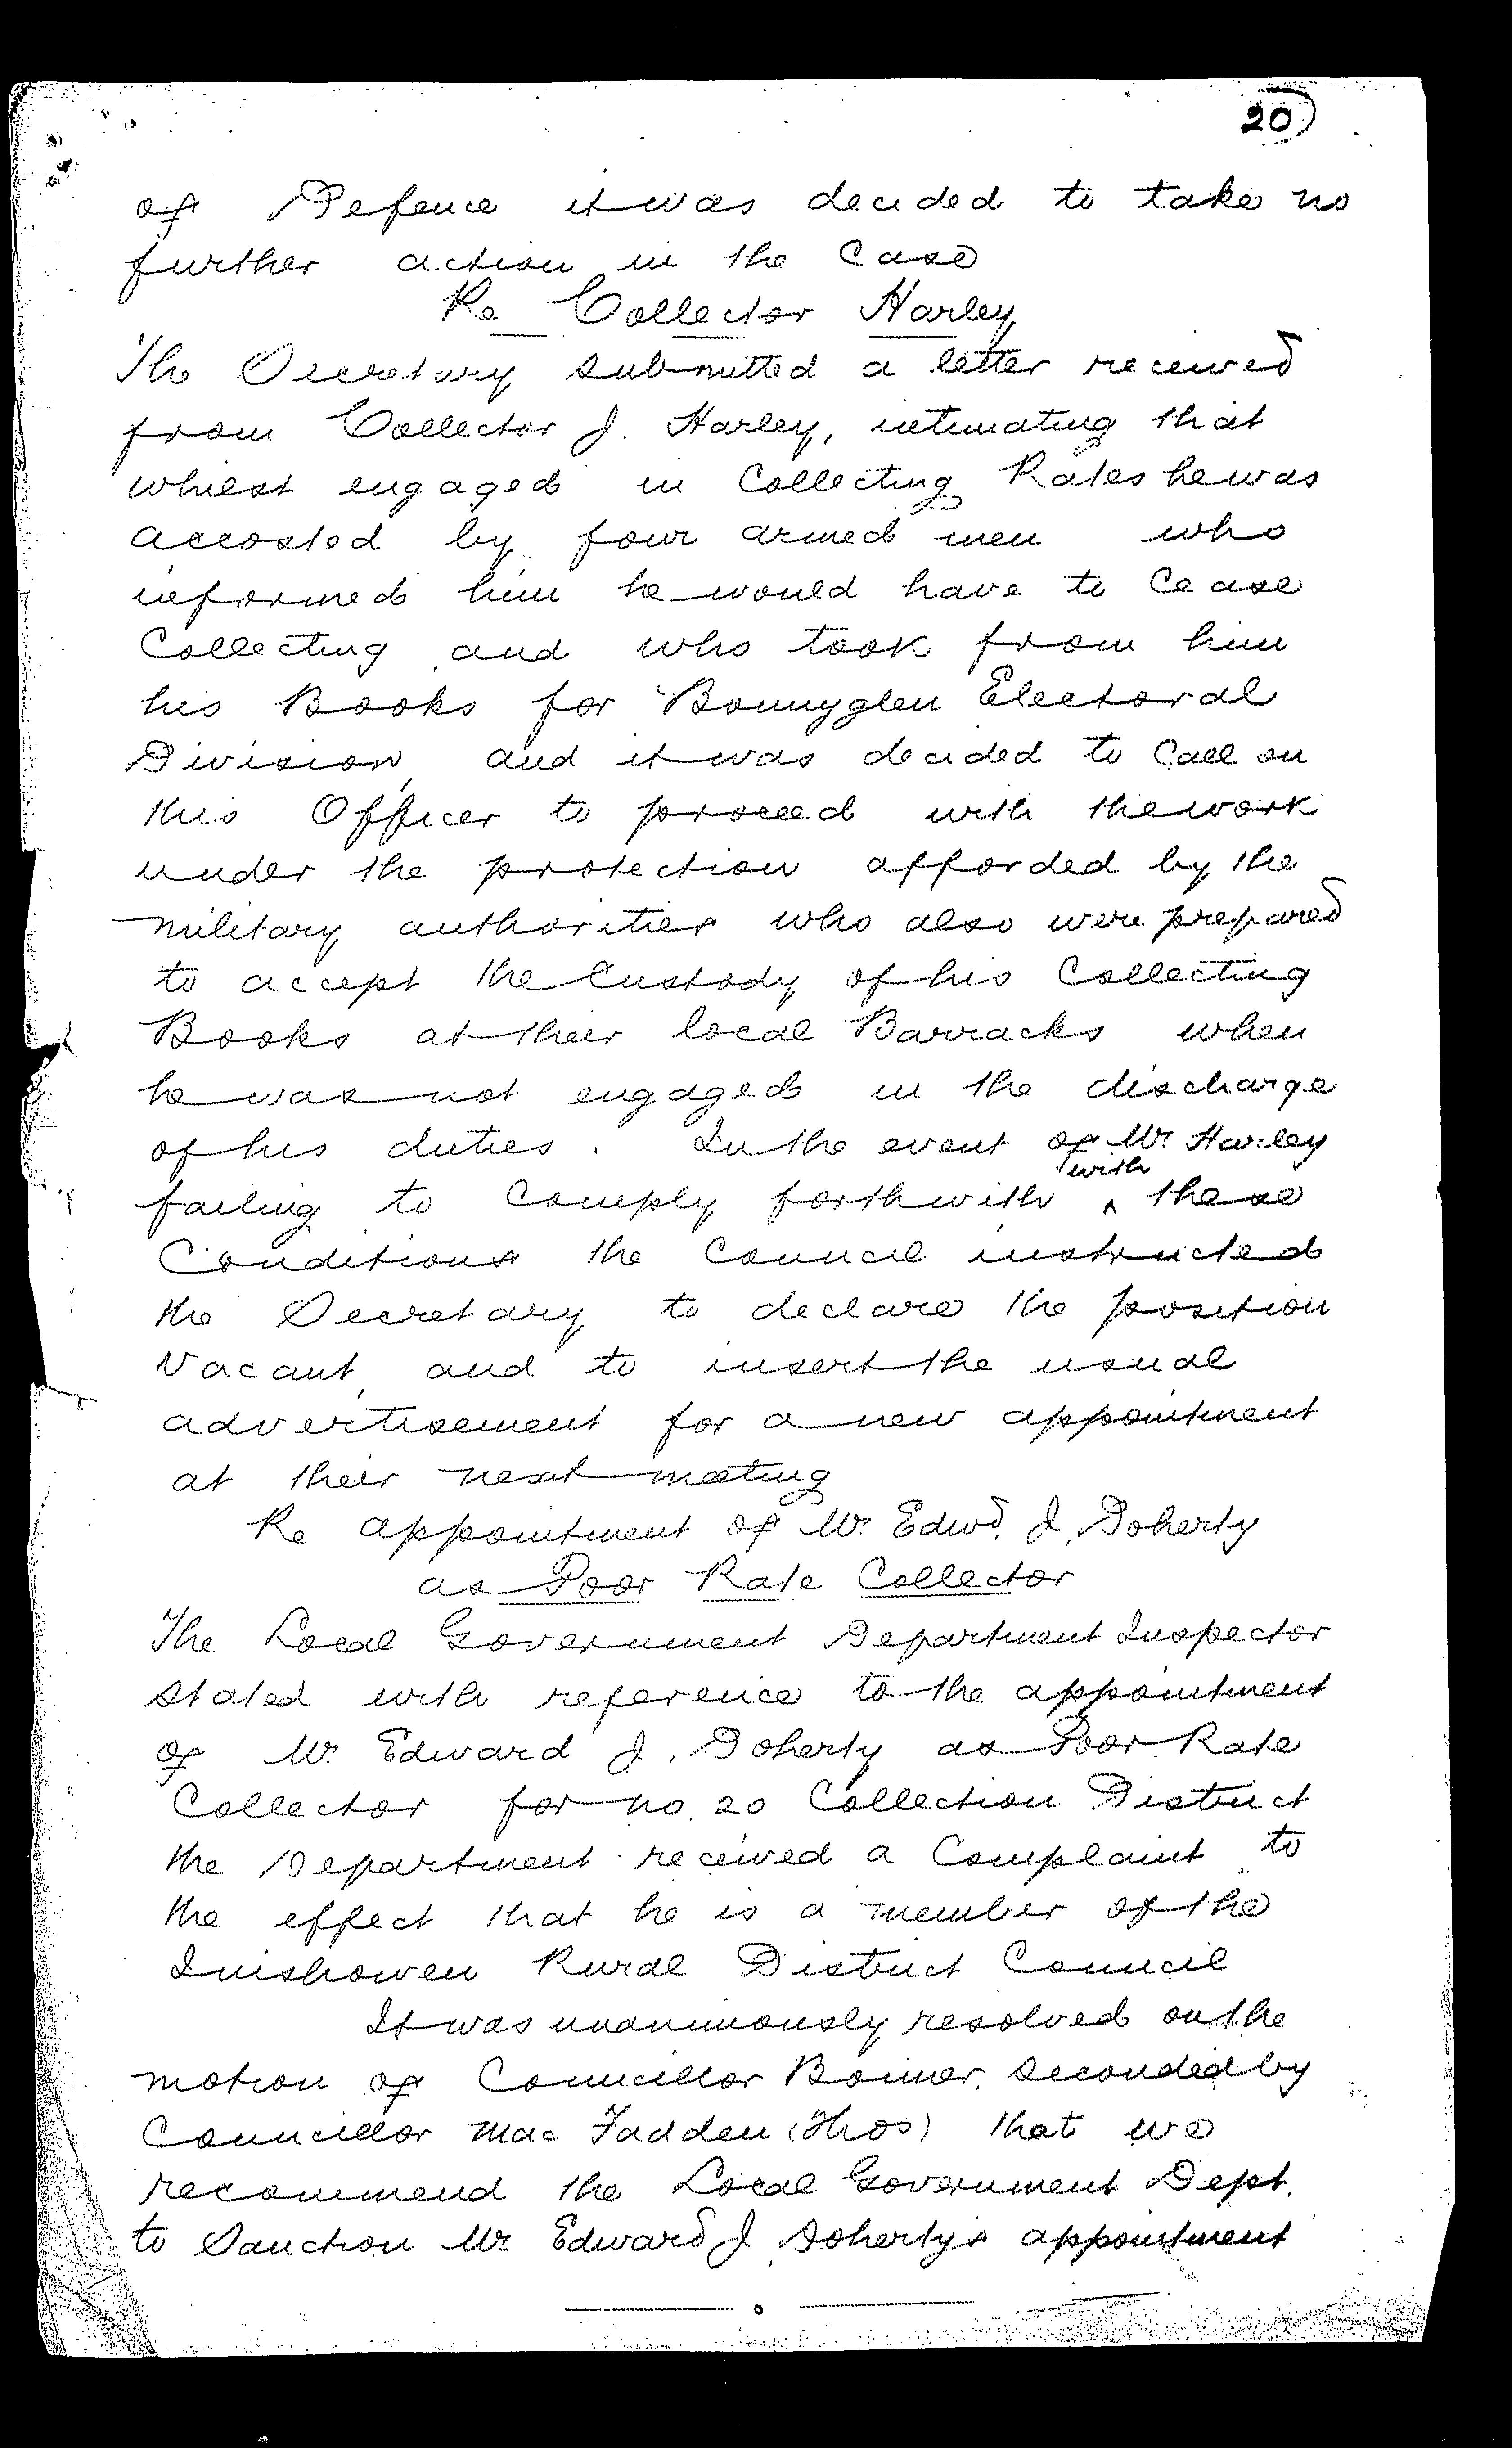 20
of Defence it was decided to take no
further action in the Case
Re Collector Harley
The Secretary submitted a letter received
from Collector J. Harley, intimating that
whilst engaged in Collecting Rates he was
accosted by four armed men who
informed him he would have to Cease
Collecting and who took from him
his Books for Bonnyglen Electoral
Division, and it was decided to Call on
this Officer to proceed with the work
under the protection afforded by the
military authorities who also were prepared
to accept the Custody of his Collecting
Books at their local Barracks when
he was not engaged in the discharge
of his duties. In the event of Mr Harley
failing to Comply forthwith with these
Conditions the Council instructed
the Secretary to declare the position
Vacant, and to insert the usual
advertisement for a new appointment
at their next meeting
Re appointment of Mr. Edwd. J. Doherty
as Poor Rate Collector
The Local Government Department Inspector
stated with reference to the appointment
of Mr. Edward J. Doherty as Poor Rate
Collector for no. 20 Collection District
the Department received a Complaint to
the effect that he is a member of the
Inishowen Rural District Council
It was unanimously resolved on the
motion of Councillor Bonner, seconded by
Councillor Mac Fadden (Thos) that we
recommend the Local Government Dept.
to Sanction Mr Edward J Dohertys appointment